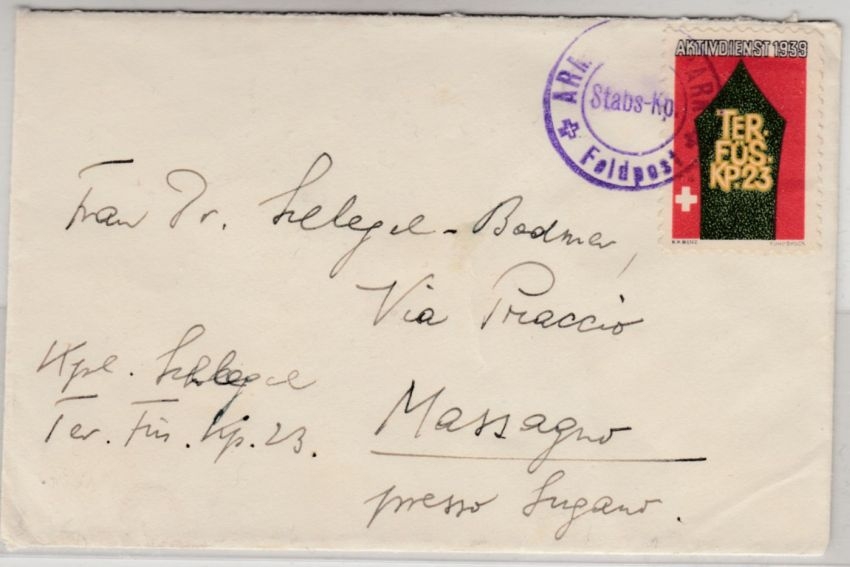 AKTIVDIENST 1939
TER.
FÜS.
KP. 23
Stabs-Kp.
Feldpost
Frau Dr. Schlegel-Bodmer,
Via Praccio
Massagno
presso Lugano.
Kpl. Schlegel
Ter. Füs. Kp. 23.